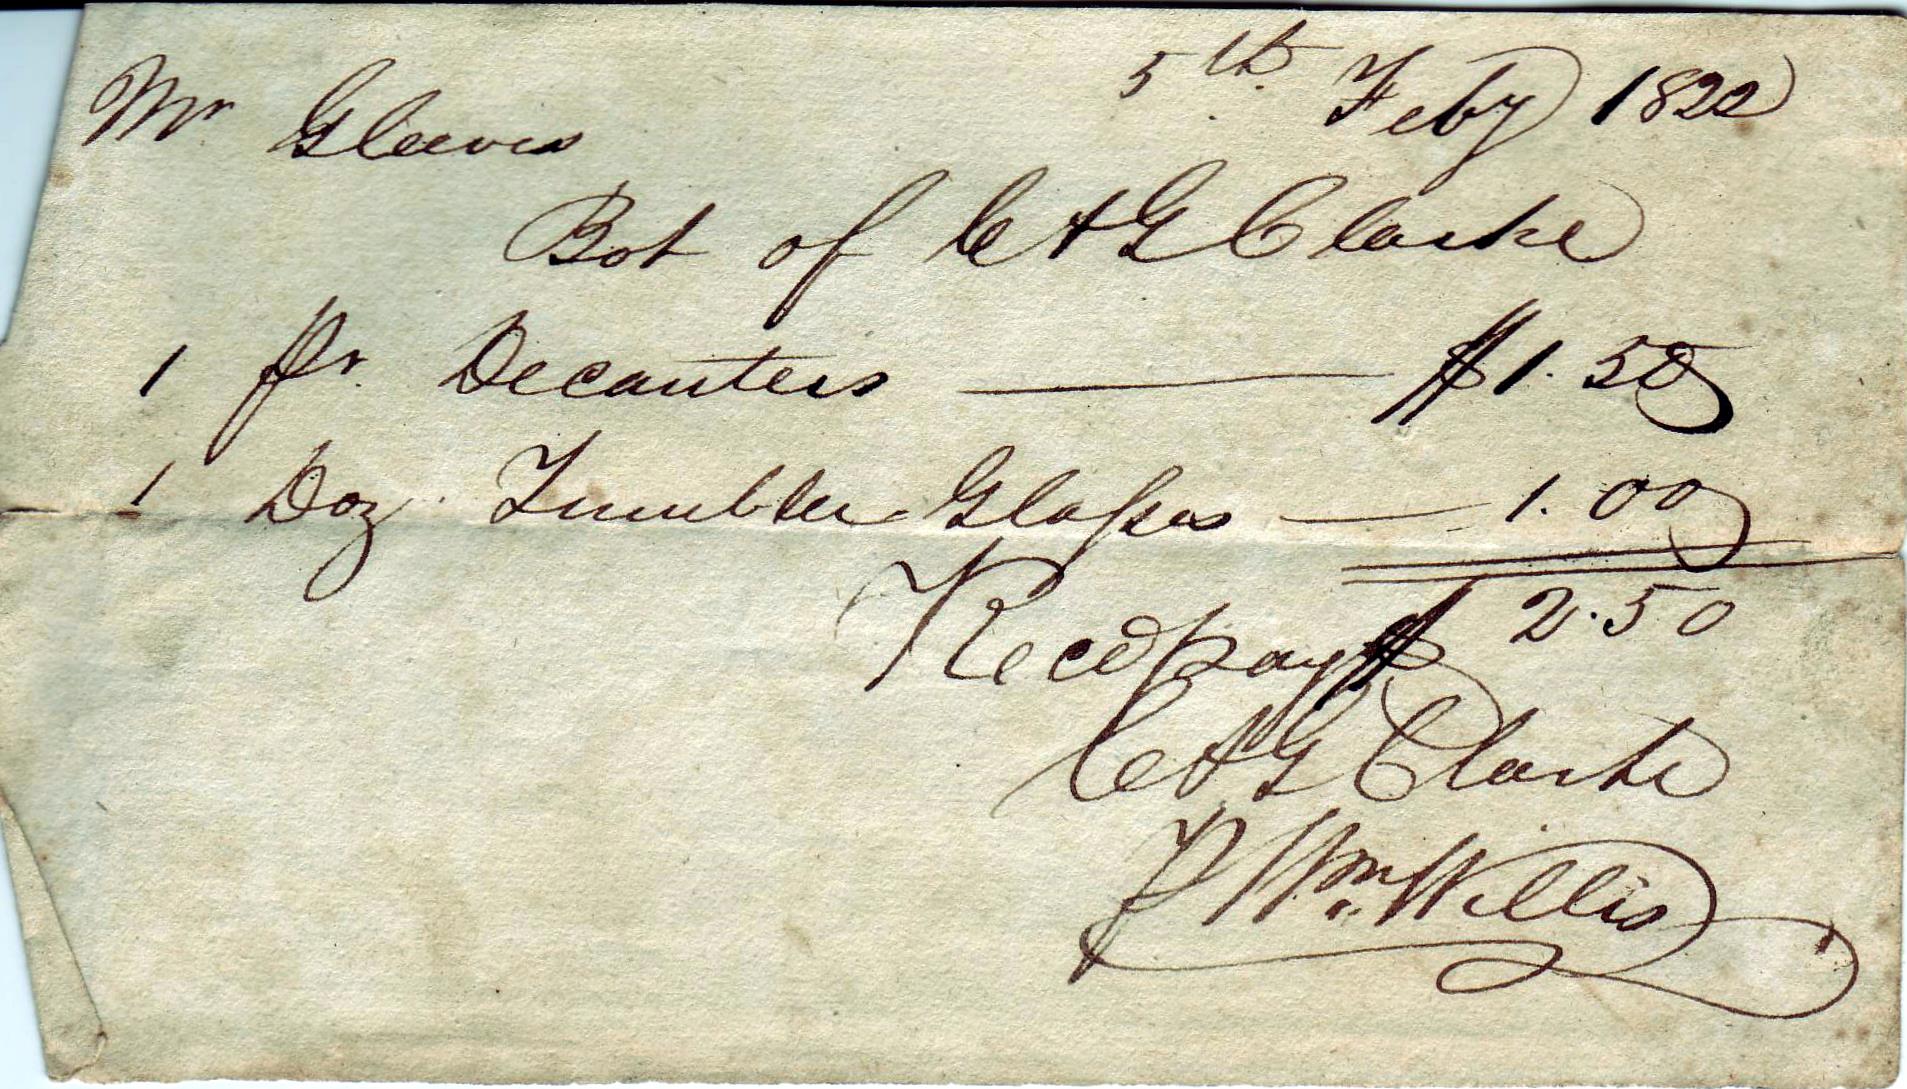 5th Feby 1822
Mr Gleaves
Bot of C & G Clarke
1 pr. Decanters — $1.50
1 Doz Tumbler Glasses — 1.00
Recd pay $ 2.50
C & G Clarke
P Wm. Willis